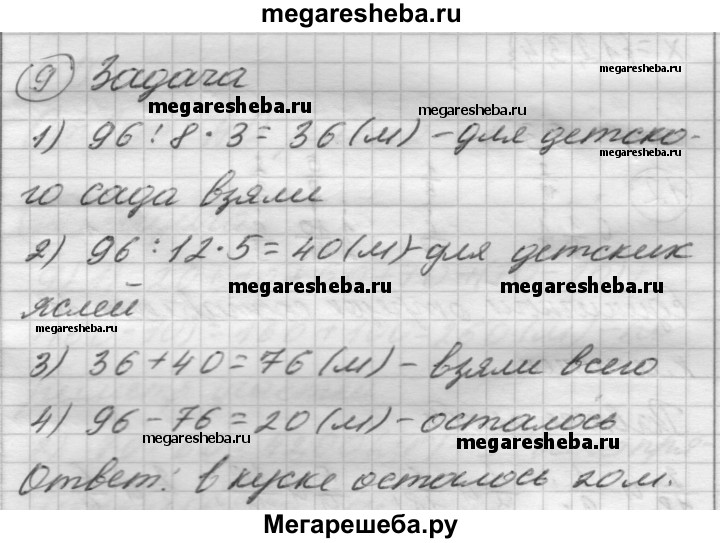 megaresheba.ru
9 Задача
megaresheba.ru
megaresheba.ru
megaresheba.ru
1) 96 : 8 · 3 = 36 (м) - для детско-
megaresheba.ru
го сада взяли
2) 96 : 12 · 5 = 40 (м) - для детских
megaresheba.ru
megaresheba.ru
яслей
megaresheba.ru
3) 36 + 40 = 76 (м) - взяли всего
4) 96 - 76 = 20 (м) - осталось
megaresheba.ru
megaresheba.ru
Ответ: в куске осталось 20 м.
Мегарешеба.ру